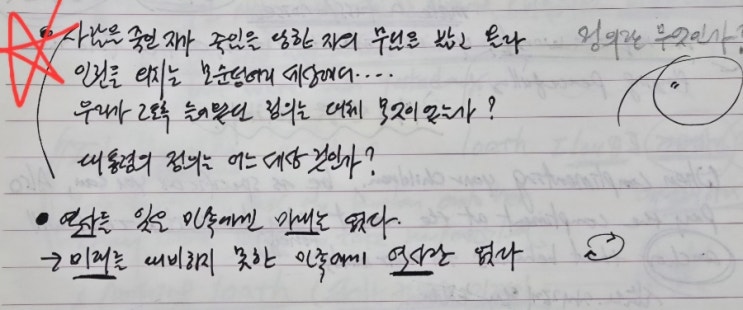 사람을 죽인 자가 죽임을 당한 자의 무덤을 밟고 올라
정의란 무엇인가?
인권을 외치는 모순덩어리 세상에서....
우리가 그토록 부르짖던 정의는 대체 무엇이었는가?
대통령의 정의는 어느 세상 것인가?
• 역사를 잊은 민족에겐 미래는 없다.
→ 미래를 대비하지 못한 민족에게 역사란 없다